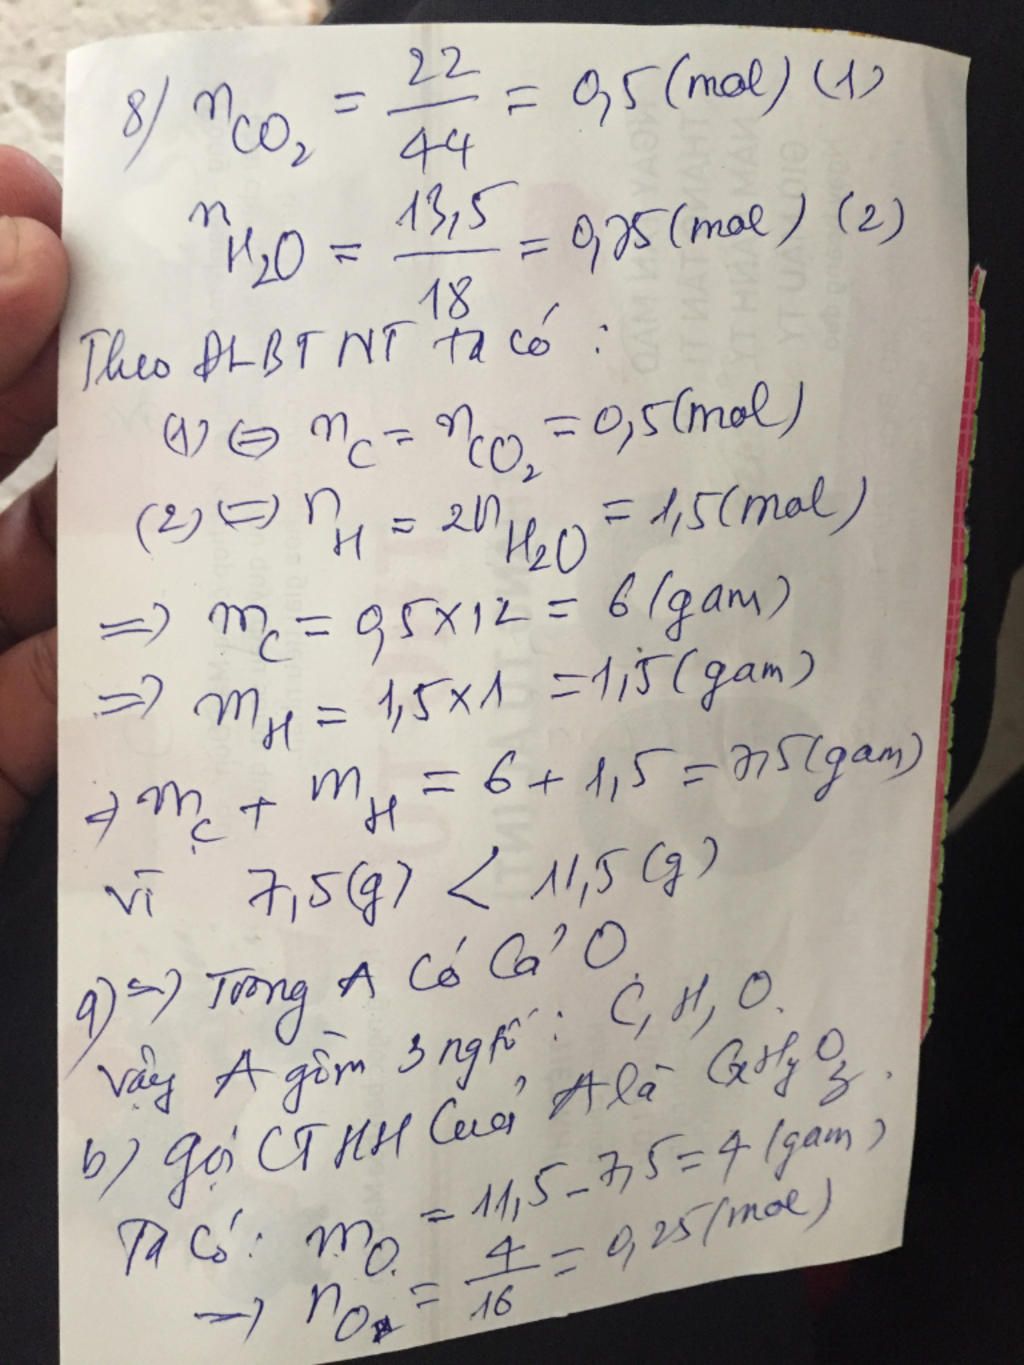 8) nCO₂ = 22/44 = 0,5 (mol) (1)
nH₂O = 13,5/18 = 0,75 (mol) (2)
Theo ĐLBTNT ta có :
(1) ⇔ nC = nCO₂ = 0,5 (mol)
(2) ⇔ nH = 2nH₂O = 1,5 (mol)
=> mC = 0,5 × 12 = 6 (gam)
=> mH = 1,5 × 1 = 1,5 (gam)
=> mC + mH = 6 + 1,5 = 7,5 (gam)
Vì 7,5 (g) < 11,5 (g)
a) => Trong A có cả O
Vậy A gồm 3 ngtố : C, H, O.
b) Gọi CTHH của A là CxHyOz.
Ta có : mO = 11,5 - 7,5 = 4 (gam)
→ nO = 4/16 = 0,25 (mol)